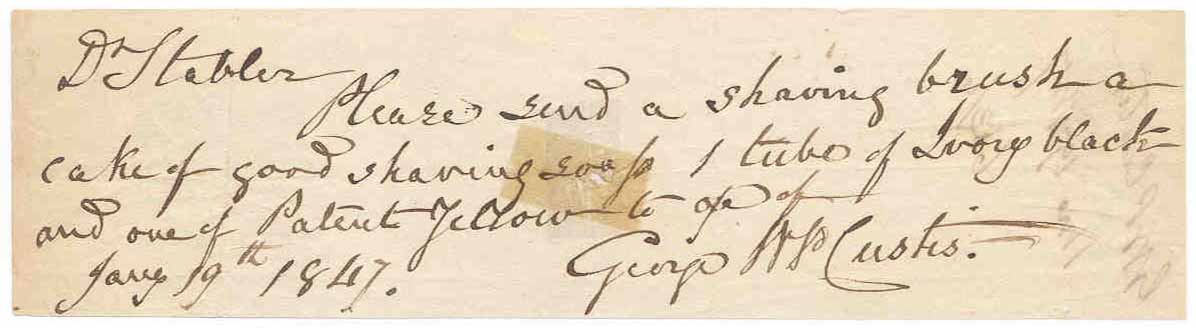 Dr Stabler
Please send a shaving brush a
cake of good shaving soap 1 tube of Ivory black
and one of Patent Yellow to of
George W P Custis.
Jany 19th 1847.